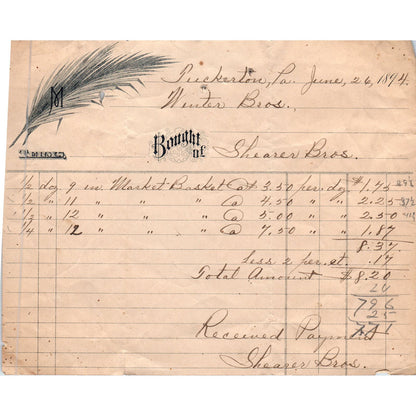 M
Tuckerton, Pa. June, 26, 1894.
Winter Bros.
Bought of Shearer Bros.
1/2 doz 9 in. Market Basket @ $3.50 per. dz. $1.75
1/2 " 11 " " " @ 4.50 " " 2.25
1/2 " 12 " " " @ 5.00 " " 2.50
1/4 " 12 " " " @ 7.50 " " 1.87
8.37
Less 2 per. ct. .17
Total Amount $8.20
24
796
25
771
Received Payment
Shearer Bros.